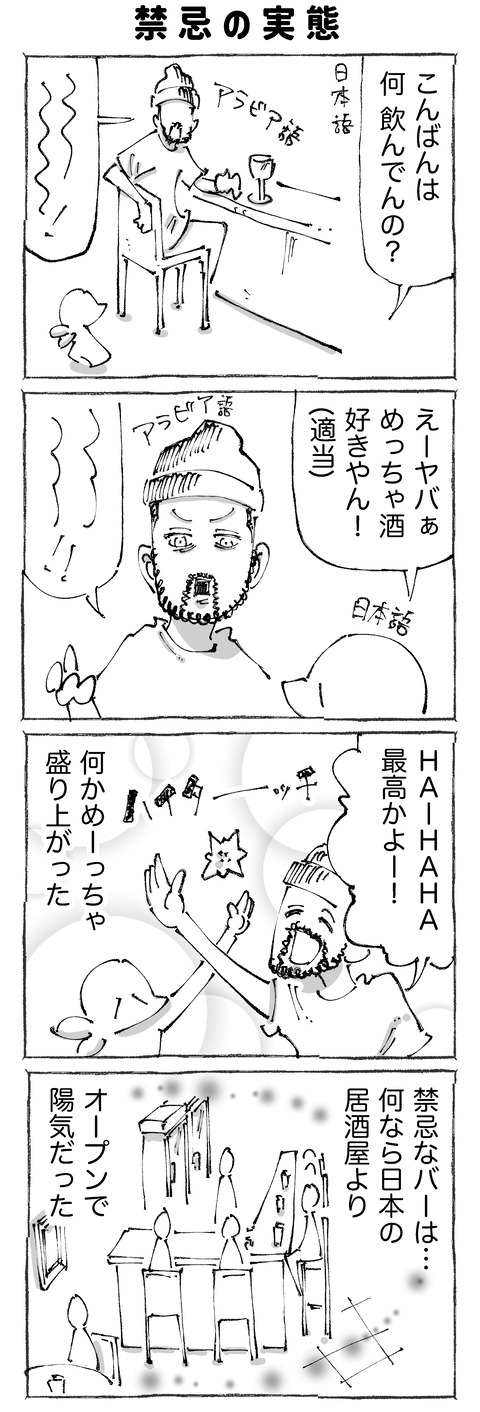 禁忌の実態
こんばんは
何 飲んでんの？
日本語
アラビア語
えーヤバぁ
めっちゃ酒
好きやん！
(適当)
日本語
アラビア語
HAーHAHA
最高かよー！
何かめーっちゃ
盛り上がった
禁忌なバーは…
何なら日本の
居酒屋より
オープンで
陽気だった